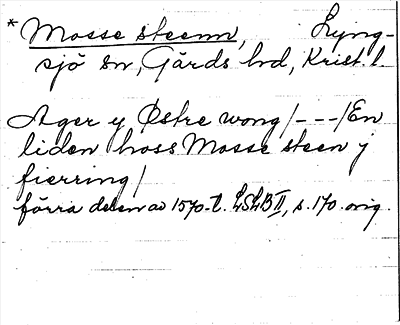 * Mosse steenn, Lyng-
sjö sn, Gärds hd, Krist. l.
Ager y Østre wong / - - - / En
liden hoss Mosse steen j
fierring /
förra delen av 1570-t. LSLB II, s. 170. orig.